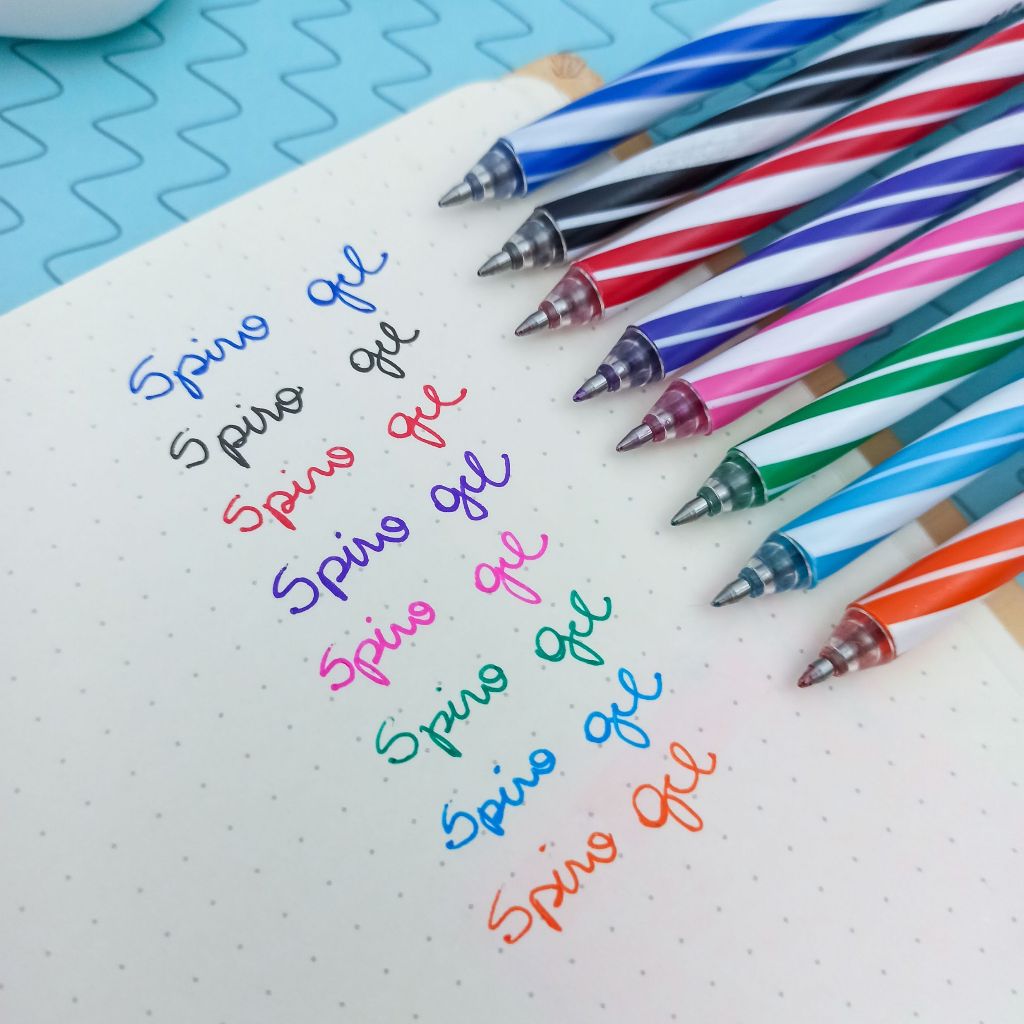 Spiro gel
Spiro gel
Spiro gel
Spiro gel
Spiro gel
Spiro gel
Spiro gel
Spiro gel